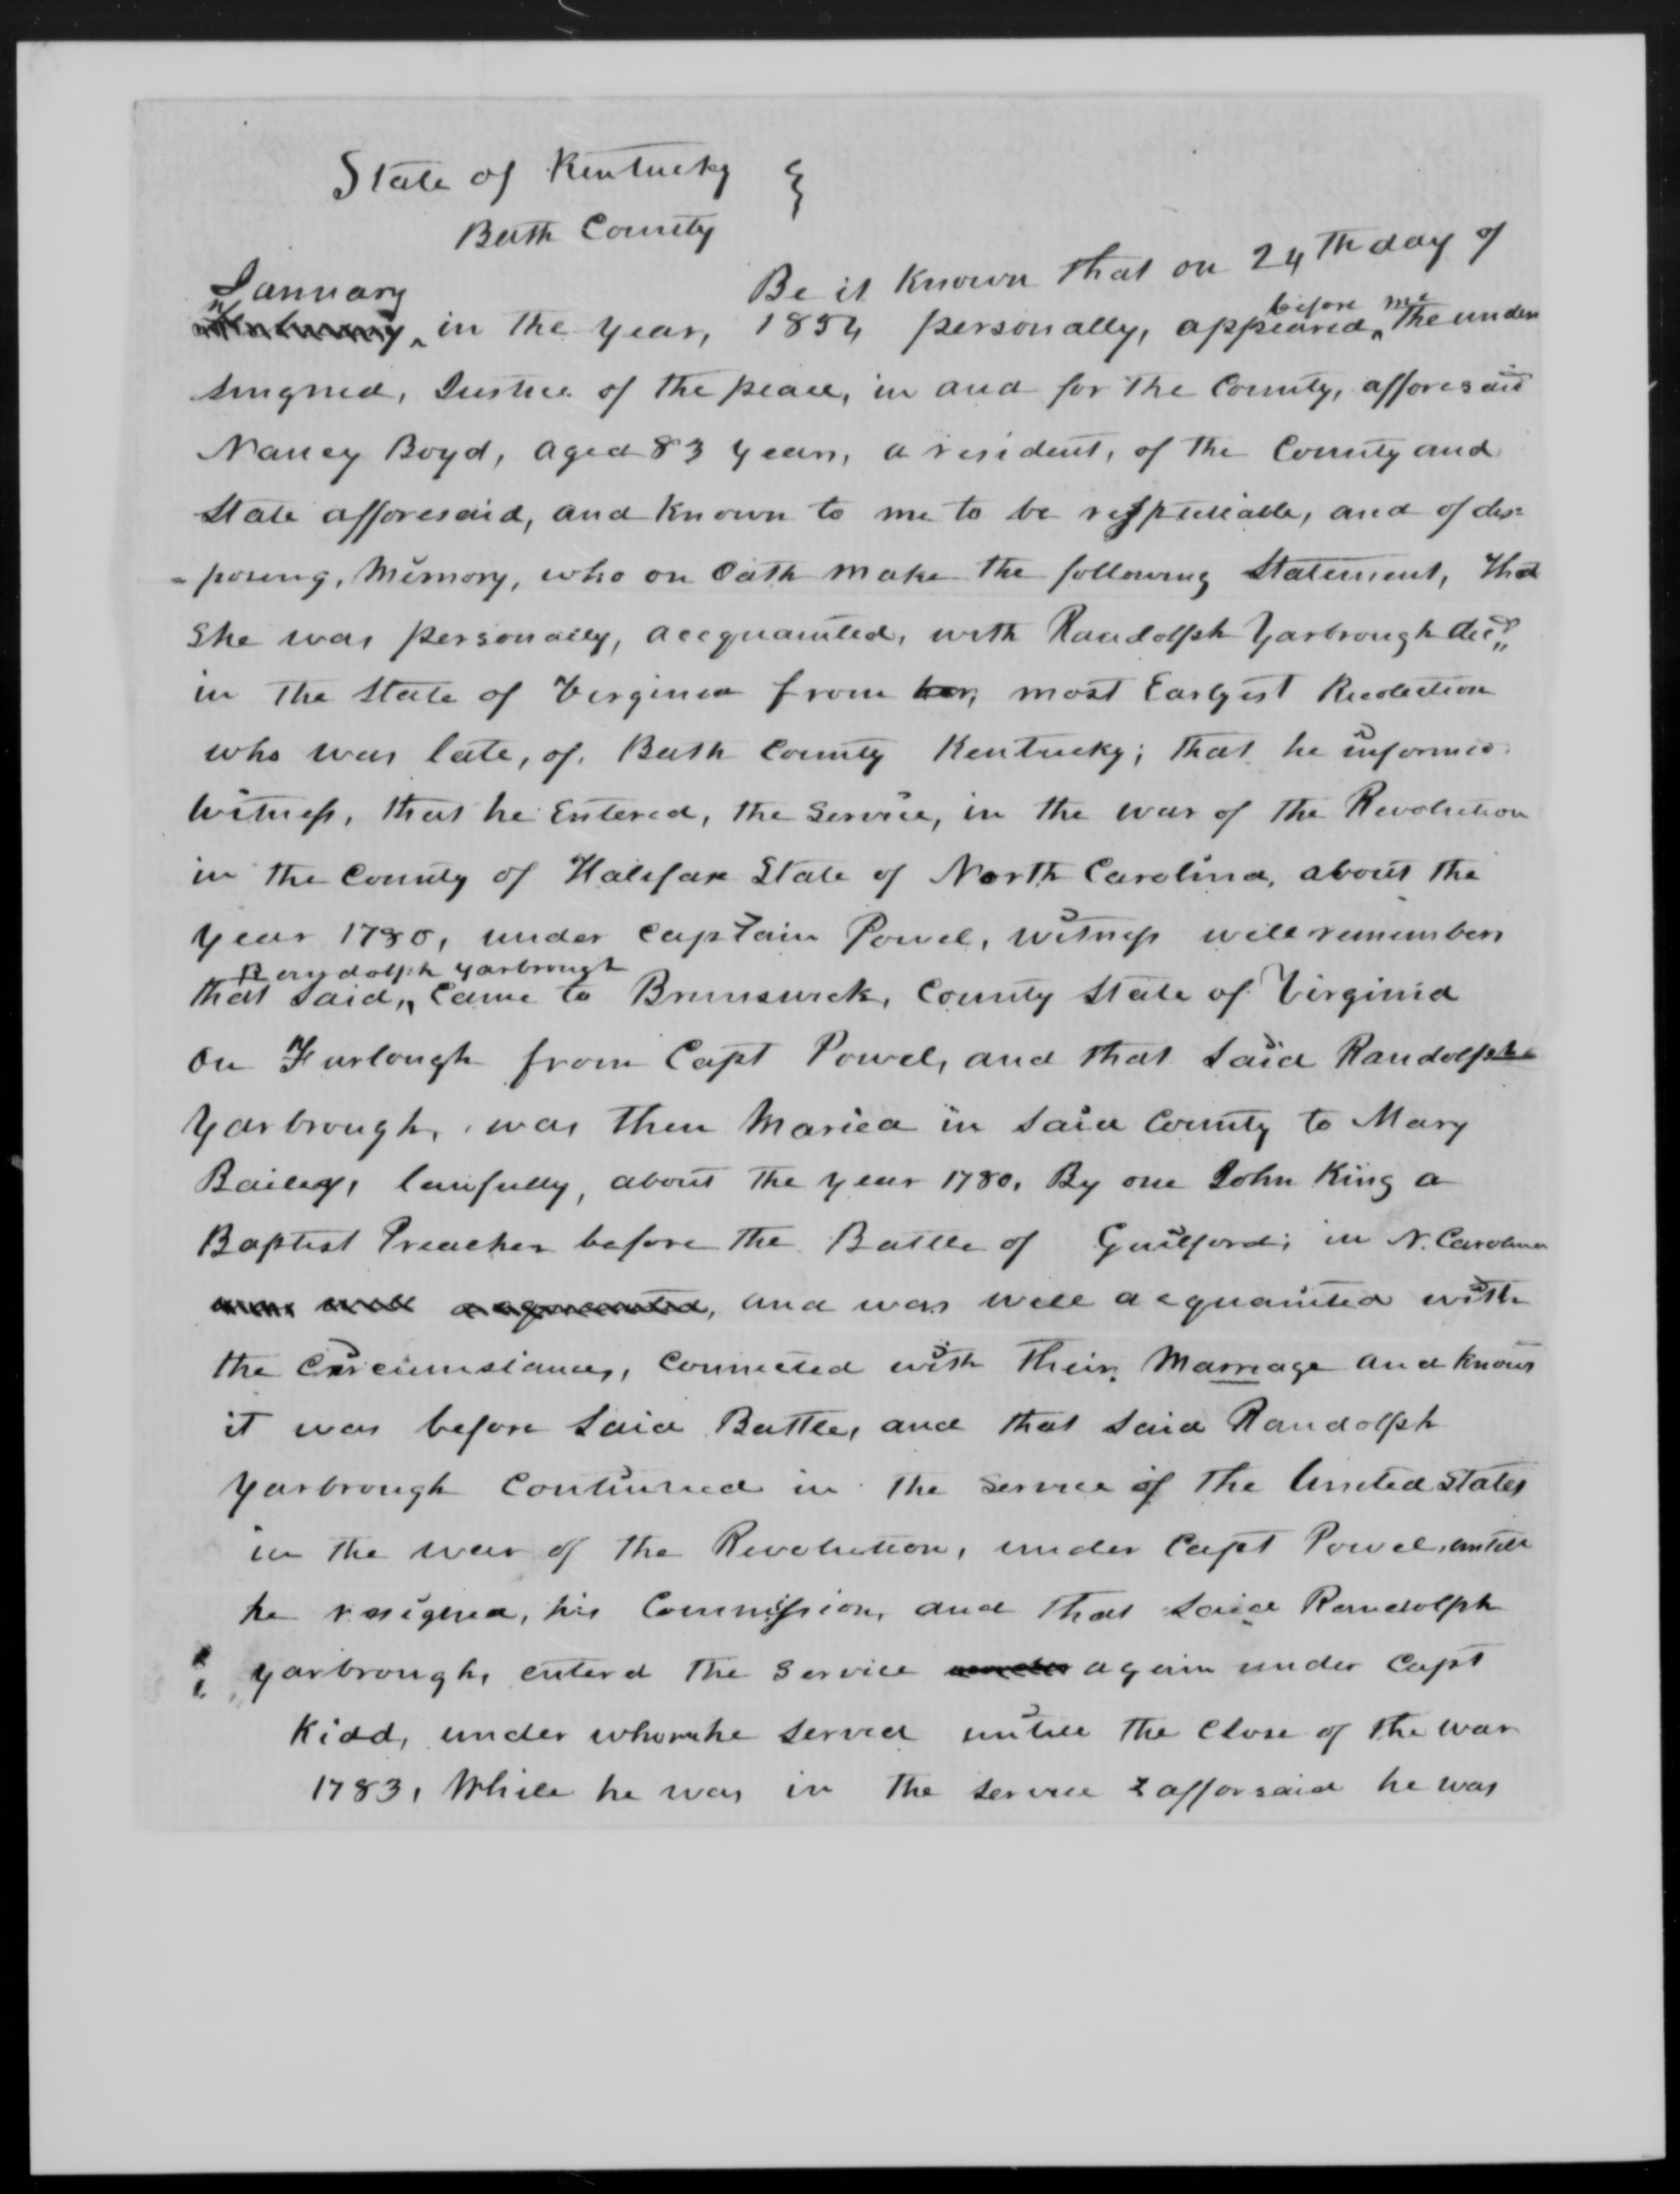 State of Kentucky }
Bath County
Be it Known that on 24th day of
January in the year, 1854 personally, appeared before me the under
singned, Justice of the peace, in and for the County, afforesaid
Nancy Boyd, aged 83 years, a resident, of the County and
State afforesaid, and Known to me to be respectable, and of dis=
=posing, Memory, who on Oath make the following Statement, That
She was personally, accquainted, with Randolph Yarbrough decd,,
in the State of Virginia from her, most Earlyist Recolection
who was late, of, Bath County Kentucky; that he informed
Witness, that he Entered, the Service, in the war of the Revolution
in the County of Halifax State of North Carolina, about the
year 1780, under Captain Powel, Witness well remembers
that said, Randolph Yarbrough Came to Brunswick, County State of Virginia
On Furlough from Capt Powel, and that said Randolph
Yarbrough, was then Maried in said County to Mary
Bailey, lawfully, about the year 1780, By one John King a
Baptist Preacher before the Battle of Guilford; in N. Carolina
was well acquainted, and was well acquainted with
the Circumstances, Connected with their, Marriage and knows
it was before said Battle, and that said Randolph
Yarbrough Continued in the Service of the United States
in the war of the Revolution, under Capt Powel, untill
he resigned, his Commission, and that said Randolph
Yarbrough, enterd the Service under again under Capt
Kidd, under whom he served untill the Close of the war
1783, While he was in the service afforsaid he was